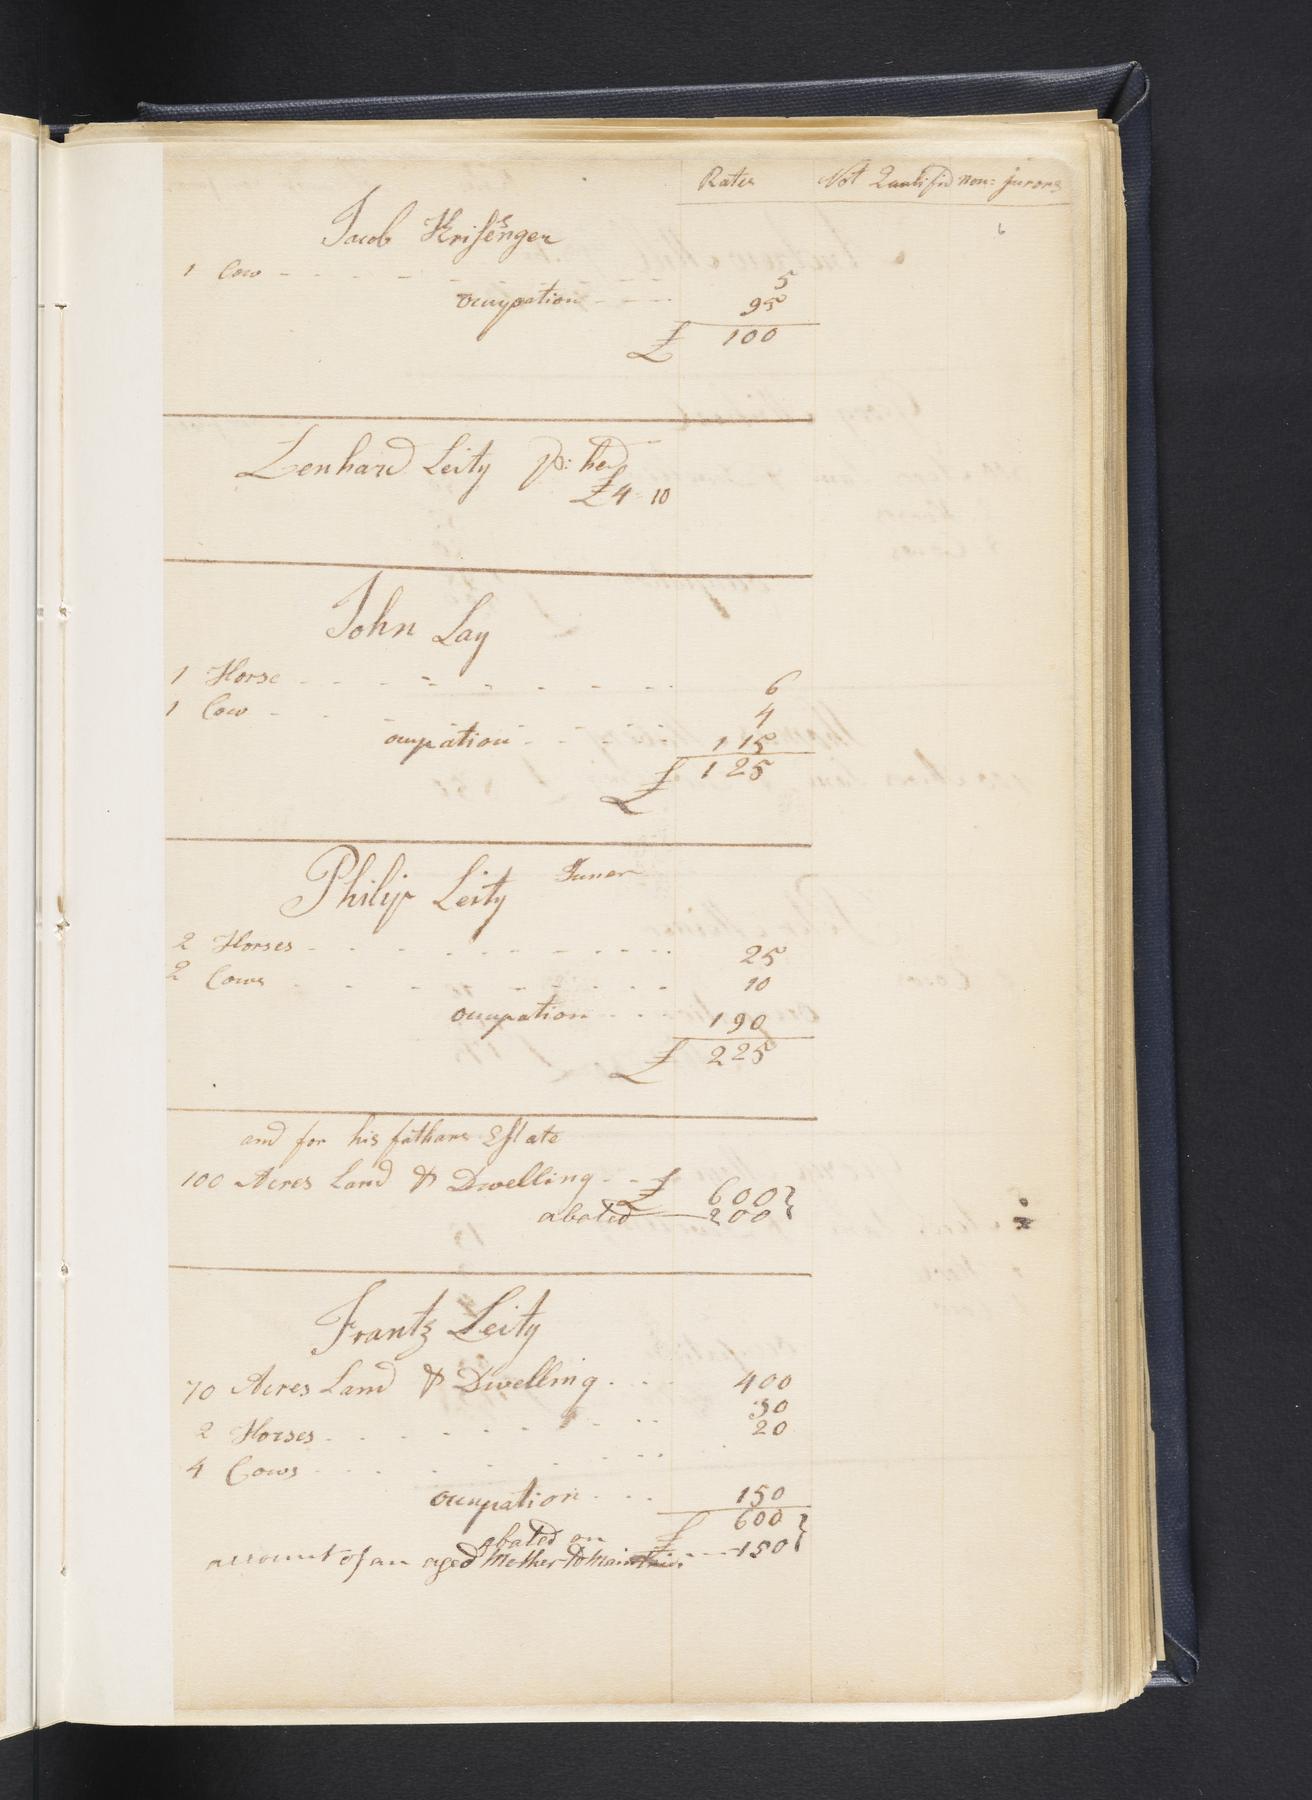 Rates Not Qualified non= jurors
6
Jacob Krisenger
1 Cow - - - - - - - 5
occupation - - - 95
£ 100
Lenhard Leity p: head
£4=10
John Lay
1 Horse - - - - - - - - 6
1 Cow - - - - - - - 4
ocupation - - - - 115
£ 125
Philip Leity Juner
2 Horses - - - - - - - - 25
2 Cows - - - - - - - - 10
occupation - - - 190
£ 225
and for his fathars Estate
100 Acres Land & Dwelling - - £ 600
abated 200
Frantz Leity
70 Acres Land & Dwelling - - - 400
2 Horses - - - - - - - - 30
4 Cows - - - - - - - - 20
occupation - - - 150
£ 600
abated on
account of an aged Mother to maintain - - - 150